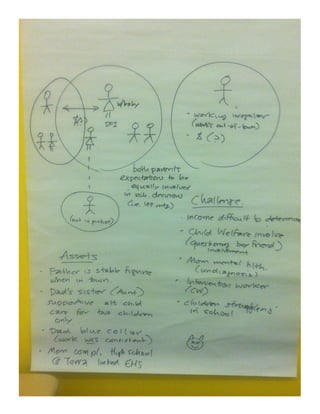 w/baby
- working irregular
(works out-of-town)
- $ (?)
both parent's
expectations to be
equally involved
in sch. decisions
(i.e. IPP mtg.)
(not in picture)
Challenge
- income difficult to determine
- Child Welfare involve
(questioning boy friend)
involvement
- Mom mental hlth.
(undiagnosis)
- Intervention worker
(CW)
- children struggling
in school
Assets
- Father is stable figure
when in town
- Dad's sister (Aunt)
supportive alt child
care for two children
only
- Dad blue collar
(work was consistent)
- Mom compl. High school
@ Terra linked EHS